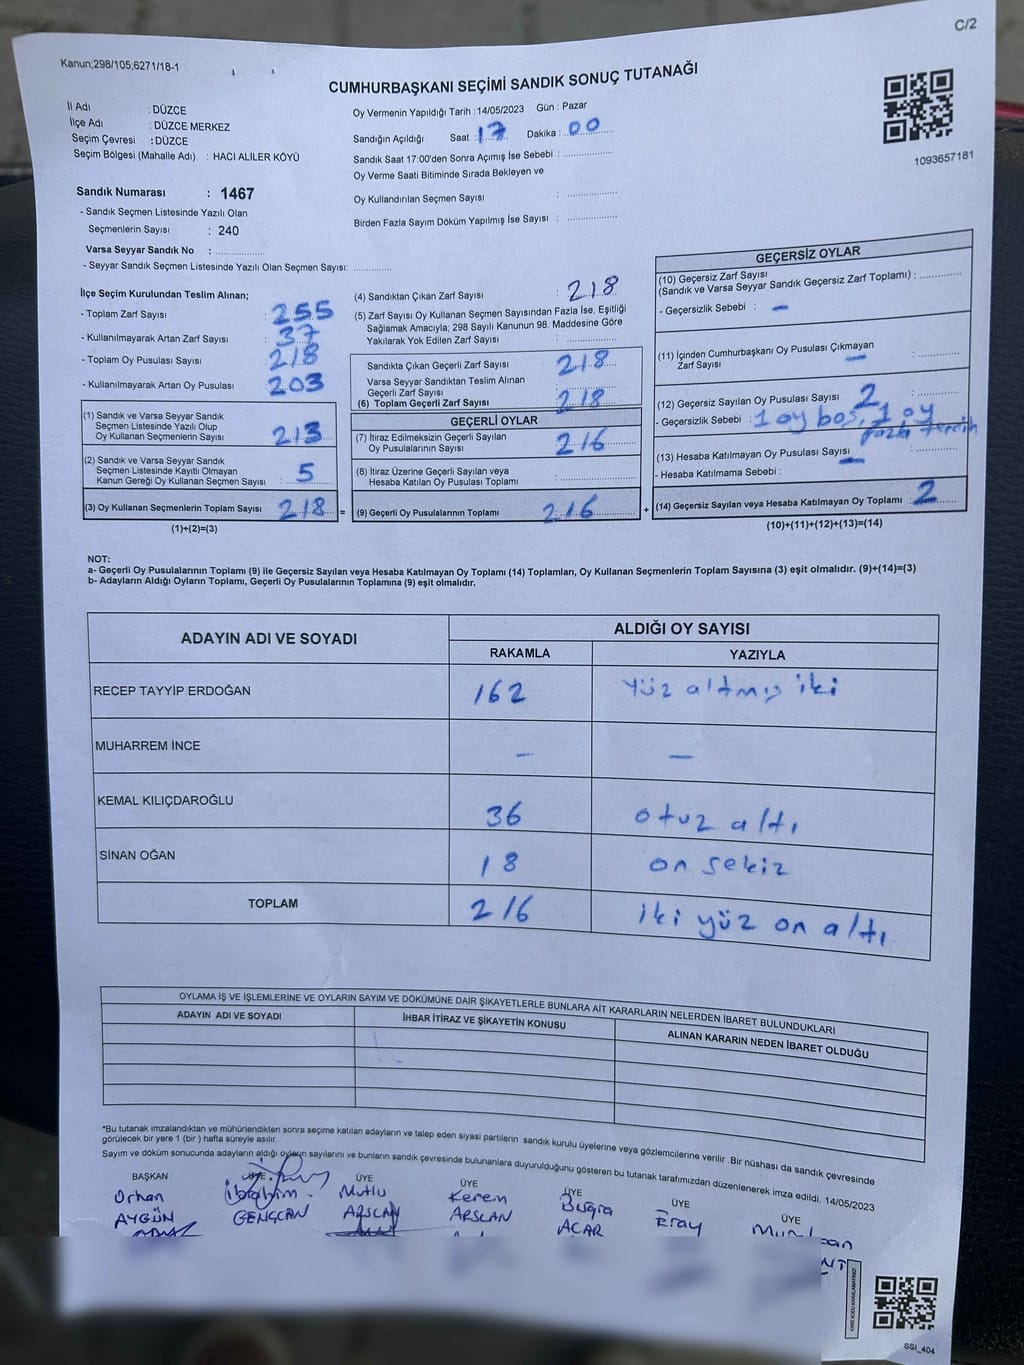 C/2
Kanun;298/105,6271/18-1
CUMHURBAŞKANI SEÇİMİ SANDIK SONUÇ TUTANAĞI
İl Adı : DÜZCE
İlçe Adı : DÜZCE MERKEZ
Seçim Çevresi : DÜZCE
Seçim Bölgesi (Mahalle Adı) : HACI ALİLER KÖYÜ
Oy Vermenin Yapıldığı Tarih : 14/05/2023 Gün : Pazar
Sandığın Açıldığı Saat : 17 Dakika : 00
Sandık Saat 17:00'den Sonra Açımış İse Sebebi :
Oy Verme Saati Bitiminde Sırada Bekleyen ve
Oy Kullandırılan Seçmen Sayısı :
Birden Fazla Sayım Döküm Yapılmış İse Sayısı :
1093657181
Sandık Numarası : 1467
- Sandık Seçmen Listesinde Yazılı Olan
Seçmenlerin Sayısı : 240
Varsa Seyyar Sandık No :
- Seyyar Sandık Seçmen Listesinde Yazılı Olan Seçmen Sayısı:
İlçe Seçim Kurulundan Teslim Alınan;
- Toplam Zarf Sayısı : 255
- Kullanılmayarak Artan Zarf Sayısı : 37
- Toplam Oy Pusulası Sayısı : 218
- Kullanılmayarak Artan Oy Pusulası : 203
(1) Sandık ve Varsa Seyyar Sandık
Seçmen Listesinde Yazılı Olup
Oy Kullanan Seçmenlerin Sayısı : 213
(2) Sandık ve Varsa Seyyar Sandık
Seçmen Listesinde Kayıtlı Olmayan
Kanun Gereği Oy Kullanan Seçmen Sayısı : 5
(3) Oy Kullanan Seçmenlerin Toplam Sayısı : 218 =
(1)+(2)=(3)
(4) Sandıktan Çıkan Zarf Sayısı : 218
(5) Zarf Sayısı Oy Kullanan Seçmen Sayısından Fazla İse, Eşitliği
Sağlamak Amacıyla; 298 Sayılı Kanunun 98. Maddesine Göre
Yakılarak Yok Edilen Zarf Sayısı :
Sandıkta Çıkan Geçerli Zarf Sayısı : 218
Varsa Seyyar Sandıktan Teslim Alınan
Geçerli Zarf Sayısı :
(6) Toplam Geçerli Zarf Sayısı : 218
GEÇERLİ OYLAR
(7) İtiraz Edilmeksizin Geçerli Sayılan
Oy Pusulalarının Sayısı : 216
(8) İtiraz Üzerine Geçerli Sayılan veya
Hesaba Katılan Oy Pusulası Toplamı :
(9) Geçerli Oy Pusulalarının Toplamı 216 +
GEÇERSİZ OYLAR
(10) Geçersiz Zarf Sayısı
(Sandık ve Varsa Seyyar Sandık Geçersiz Zarf Toplamı) :
- Geçersizlik Sebebi : —
(11) İçinden Cumhurbaşkanı Oy Pusulası Çıkmayan
Zarf Sayısı — :
(12) Geçersiz Sayılan Oy Pusulası Sayısı : 2
- Geçersizlik Sebebi : 1 oy boş, 1 oy
fazla tercih
(13) Hesaba Katılmayan Oy Pusulası Sayısı : —
- Hesaba Katılmama Sebebi :
(14) Geçersiz Sayılan veya Hesaba Katılmayan Oy Toplamı : 2
(10)+(11)+(12)+(13)=(14)
NOT:
a- Geçerli Oy Pusulalarının Toplamı (9) ile Geçersiz Sayılan veya Hesaba Katılmayan Oy Toplamı (14) Toplamları, Oy Kullanan Seçmenlerin Toplam Sayısına (3) eşit olmalıdır. (9)+(14)=(3)
b- Adayların Aldığı Oyların Toplamı, Geçerli Oy Pusulalarının Toplamına (9) eşit olmalıdır.
ADAYIN ADI VE SOYADI ALDIĞI OY SAYISI
RAKAMLA YAZIYLA
RECEP TAYYİP ERDOĞAN 162 yüz altmış iki
MUHARREM İNCE — —
KEMAL KILIÇDAROĞLU 36 otuz altı
SİNAN OĞAN 18 on sekiz
TOPLAM 216 iki yüz on altı
OYLAMA İŞ VE İŞLEMLERİNE VE OYLARIN SAYIM VE DÖKÜMÜNE DAİR ŞİKAYETLERLE BUNLARA AİT KARARLARIN NELERDEN İBARET BULUNDUKLARI
ADAYIN ADI VE SOYADI İHBAR İTİRAZ VE ŞİKAYETİN KONUSU ALINAN KARARIN NEDEN İBARET OLDUĞU
*Bu tutanak imzalandıktan ve mühürlendikten sonra seçime katılan adayların ve talep eden siyasi partilerin sandık kurulu üyelerine veya gözlemcilerine verilir .Bir nüshası da sandık çevresinde
görülecek bir yere 1 (bir ) hafta süreyle asılır.
Sayım ve döküm sonucunda adayların aldığı oyların sayılarını ve bunların sandık çevresinde bulunanlara duyurulduğunu gösteren bu tutanak tarafımızdan düzenlenerek imza edildi. 14/05/2023
BAŞKAN ÜYE ÜYE ÜYE ÜYE ÜYE ÜYE
Orhan İbrahim Mutlu Kerem Buğra Eray
AYGÜN GENÇCAN ARSLAN ARSLAN ACAR
SSI_404